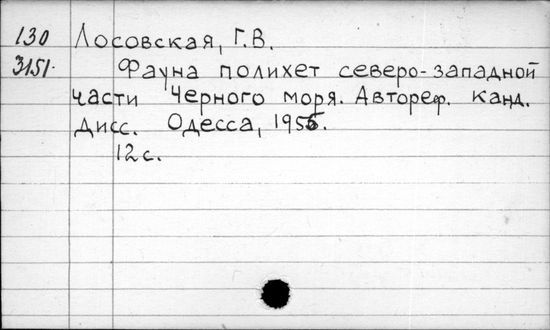 130 Лосовская, Г.В.
3151. Фауна полихет северо-западной
части Черного моря. Автореф. канд.
дисс. Одесса,
12 с.